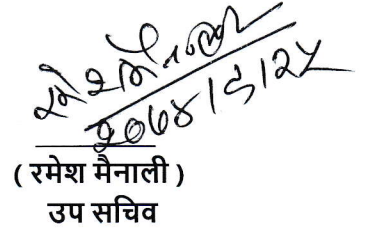 २०७४।८।२५
( रमेश मैनाली )
उप सचिव